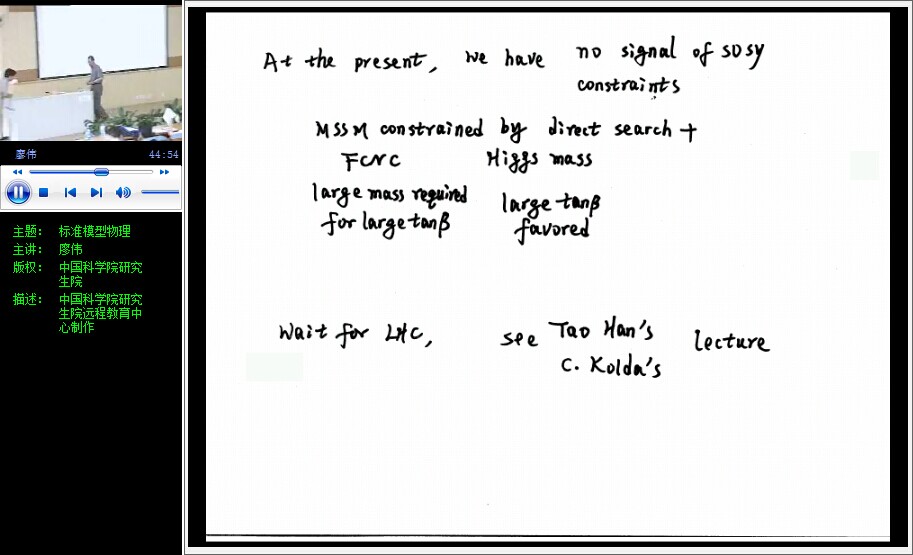 廖伟
44:54
主题: 标准模型物理
主讲: 廖伟
版权: 中国科学院研究
生院
描述: 中国科学院研究
生院远程教育中
心制作
At the present, we have no signal of SUSY
constraints
MSSM constrained by direct search +
FCNC Higgs mass
large mass required large tanβ
for large tanβ favored
Wait for LHC, see Tao Han's lecture
C. Kolda's